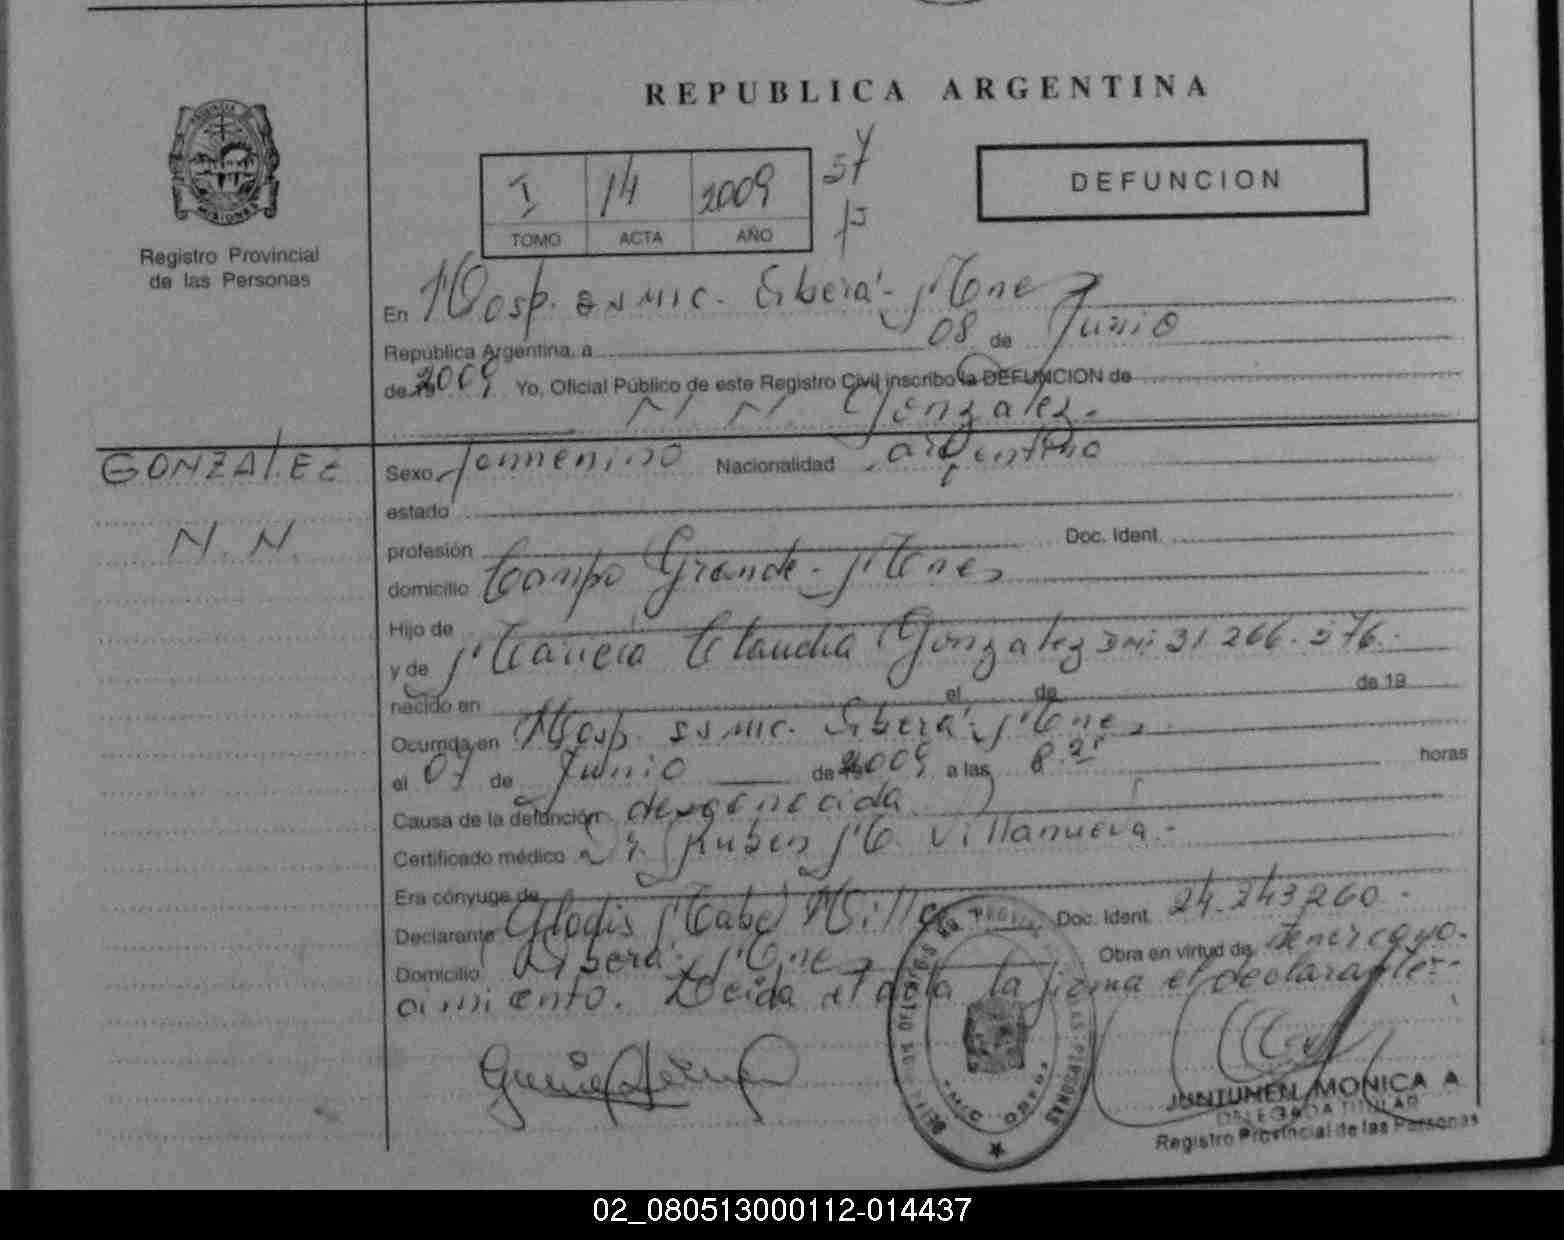 REPUBLICA ARGENTINA
MISIONES
Registro Provincial
de las Personas
I 14 2009
TOMO ACTA AÑO
DEFUNCION
En Hosp. SS MIC. Eiberá - Mnes
República Argentina, a 08 de Junio
de 2009 Yo, Oficial Público de este Registro Civil inscribo la DEFUNCION de
N. N. Gonzalez.
GONZALEZ
N. N.
Sexo femenino Nacionalidad argentina
estado
profesión Doc. Ident.
domicilio Campo Grande - Mnes
Hijo de
y de Maricia Claudia Gonzalez DNI 31.266.576.
nacido en el de de 19
Ocurrida en Hosp. SS MIC. Eiberá - Mnes
el 07 de Junio de 2009 a las 8.25 horas
Causa de la defunción desconocida
Certificado médico Dr. Ruben M. Villanueva -
Era cónyuge de
Declarante Gladis Mabel Doc. Ident. 24.243.260 -
Domicilio Mnes Obra en virtud de tener cono-
cimiento. Leida el acta la firma el declarante -
JUNTUNEN MONICA A
DELEGADA TITULAR
Registro Provincial de las Personas
02_080513000112-014437